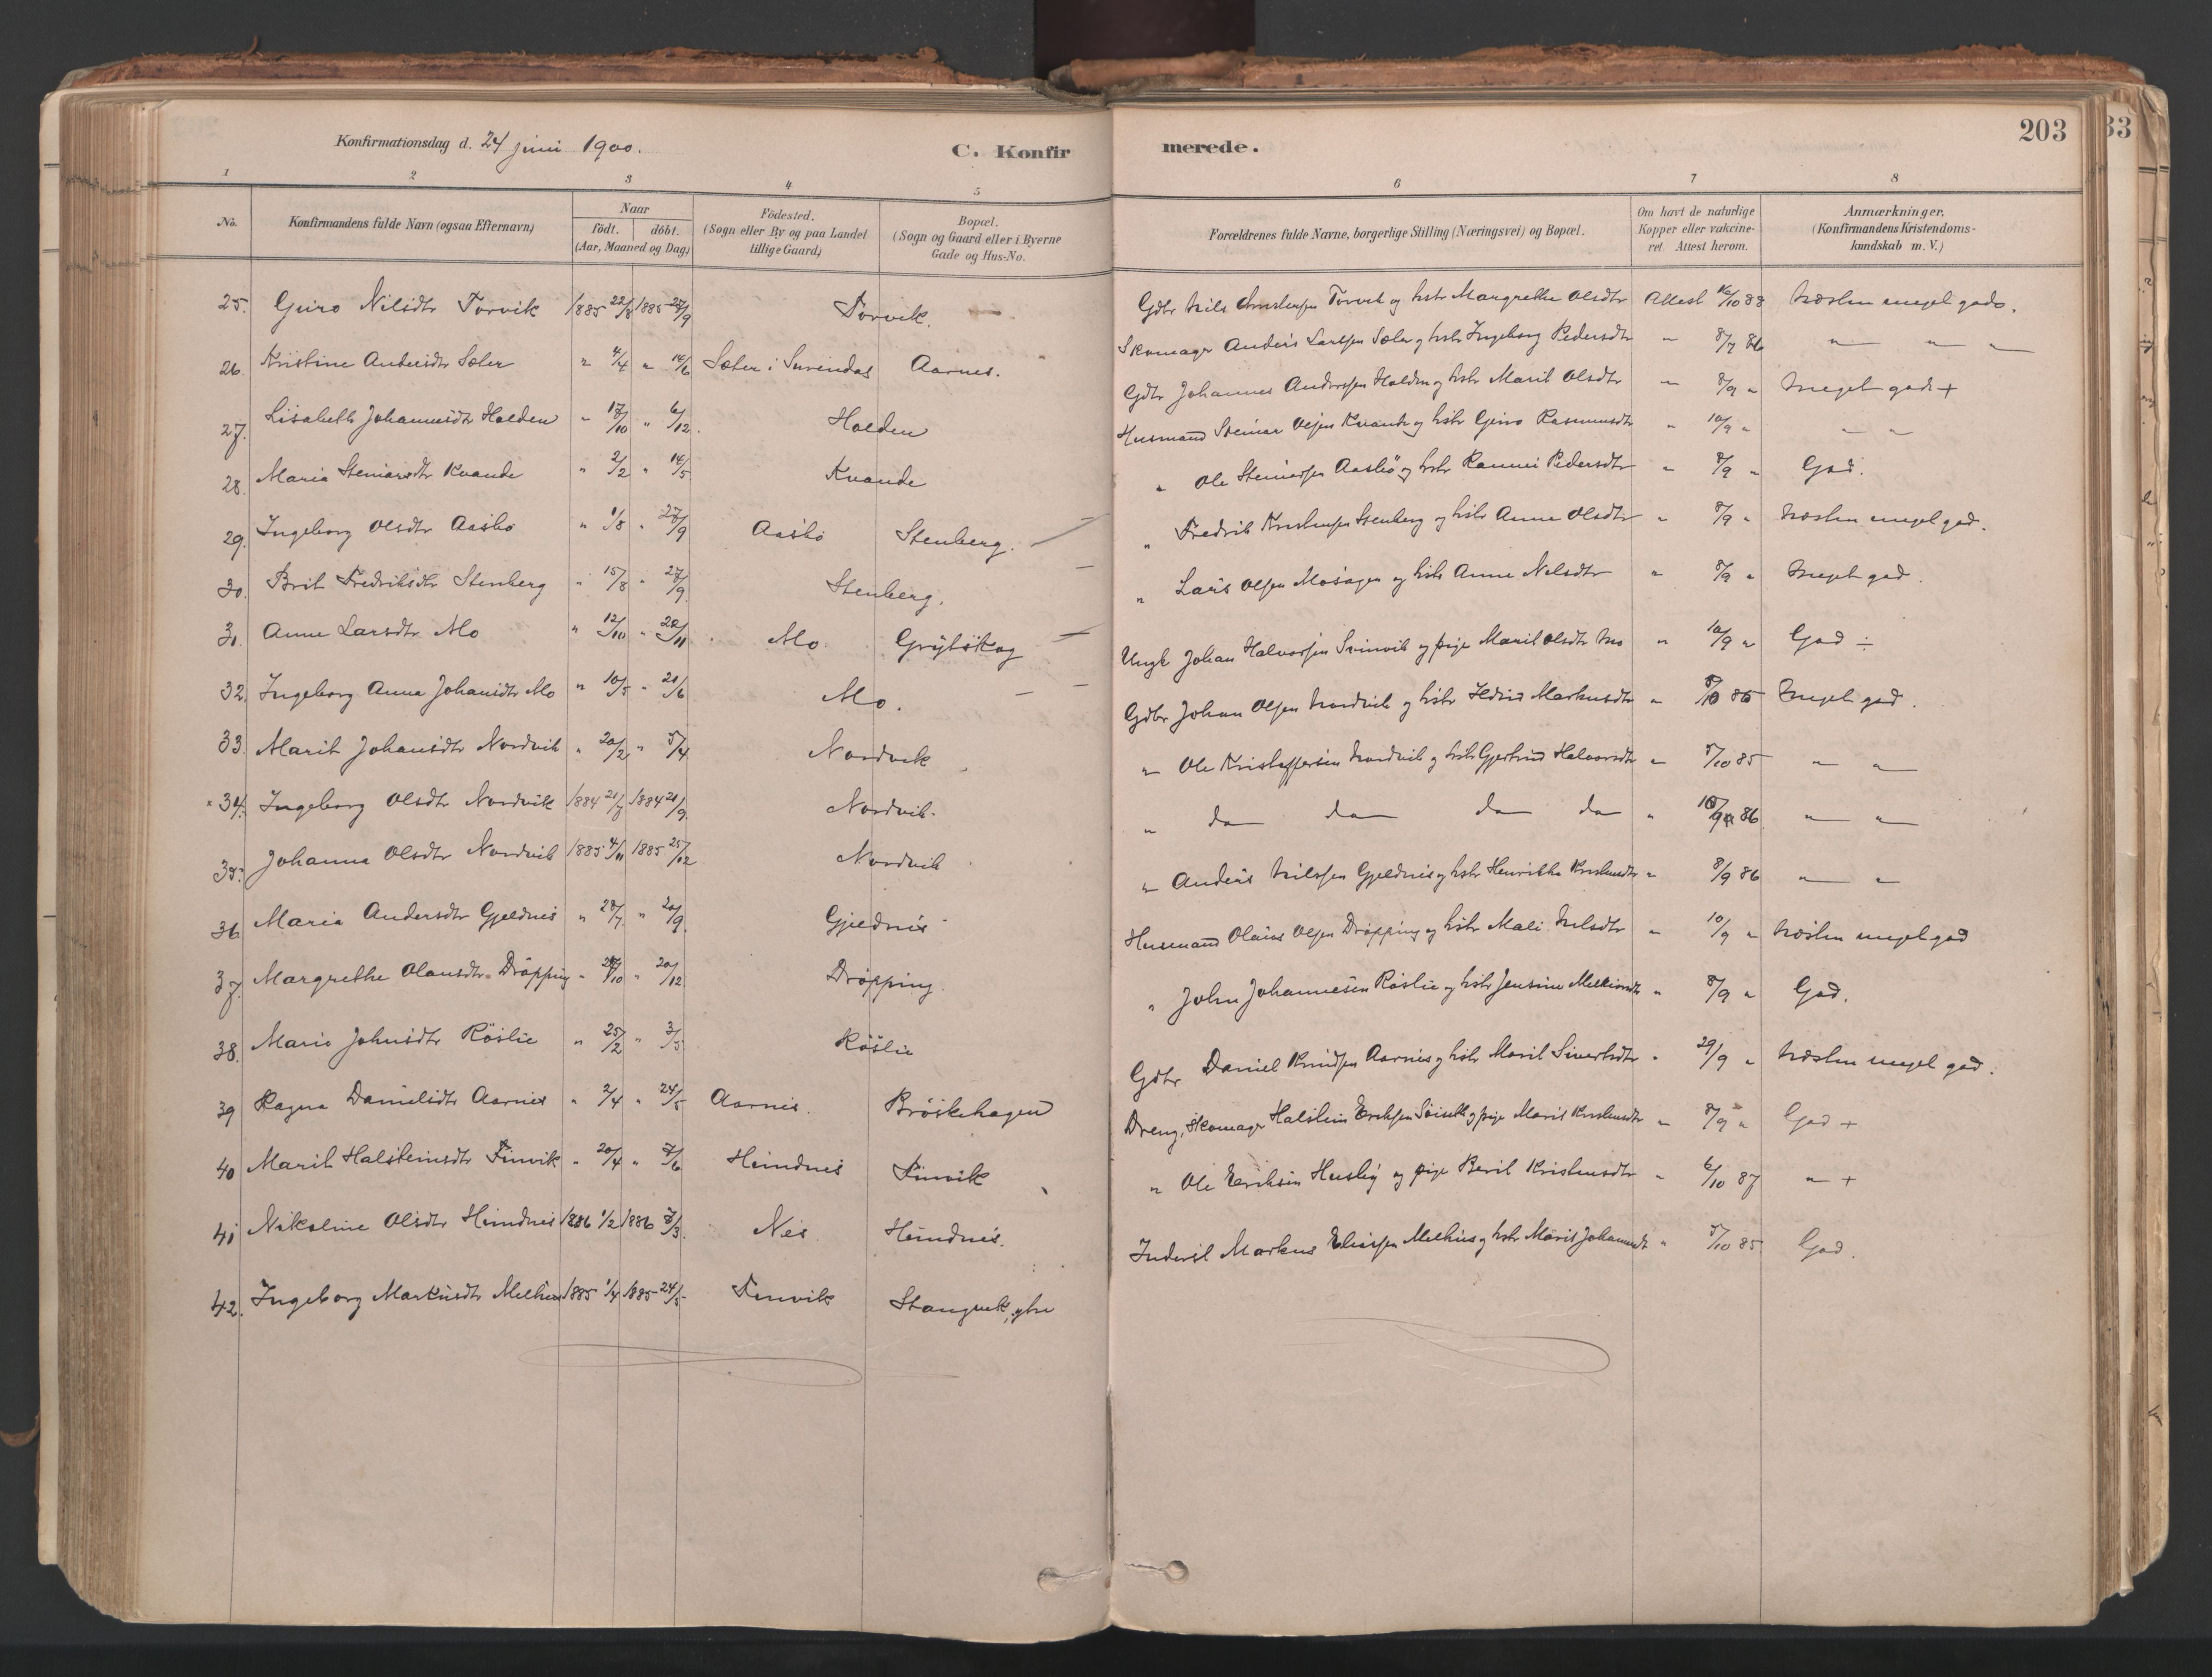 Konfirmationsdag d. 24 juni 1900.
C. Konfir
merede.
203
33
1 2 3 4 5 6 7 8
No.
Konfirmandens fulde Navn (ogsaa Efternavn)
Naar
födt. döbt.
(Aar, Maaned og Dag)
Födested.
(Sogn eller By og paa Landet
tillige Gaard)
Bopæl.
(Sogn og Gaard eller i Byerne
Gade og Hus-No.
Forældrenes fulde Navne, borgerlige Stilling (Næringsvei) og Bopæl.
Om havt de naturlige
Kopper eller vakcine-
ret. Attest herom.
Anmærkninger.
(Konfirmandens Kristendoms-
kundskab m. V.)
25. Guro Nilsdtr Torvik 1885 22/8 1885 27/9 Torvik. Gdbr Nils Torvik og hstr Margrethe Olsdtr Attest 16/10 88 næsten meget godt.
26. Kristine Andersdtr Sæter " 4/4 " 14/6 Sæter i Surendal Aarnes. Skomager Anders Larssen Sæter og hstr Ingeborg Pedersdtr " 8/7 86 " " "
27. Lisabeth Johannesdtr Halden " 17/10 " 6/12. Halden Gdbr Johannes Anderssen Halden og hstr Marit Olsdtr " 8/9 " Meget godt +
28. Maria Steinarsdtr Kvande " 2/2 " 14/5 Kvande Husmand Steinar Olsen Kvande og hstr Guro Rasmusdtr " 10/9 " " "
29. Ingeborg Olsdtr Aasbö " 1/8 " 27/9 Aasbö Stenberg. " Ole Steinarsen Aasbö og hstr Pedersdtr " 8/9 " God.
30. Brit Fredriksdtr Stenberg " 15/8 " 27/9 Stenberg. " Fredrik Kristensen Stenberg og hstr Anne Olsdtr " 8/9 " næsten meget god.
31. Anne Larsdtr Mo " 12/10 " 22/11 Mo Grytskog " Lars Olsen Mosagen og hstr Anne Nilsdtr " 8/9 " Meget god.
32. Ingeborg Anna Johansdtr Mo " 10/5 " 21/6 Mo. Ungk Johan Halvorsen Svinvik og pige Marit Olsdtr Mo " 10/9 " God ÷
33. Marit Johansdtr Nordvik " 20/2 " 5/4. Nordvik Gdbr Johan Olsen Nordvik og hstr Markusdtr " 8/10 85 Meget god.
34. Ingeborg Olsdtr Nordvik 1884 21/7 1884 21/9. Nordvik. " Ole Kristoffersen Nordvik og hstr Gjertrud Halvorsdtr " 5/10 85 " "
35. Johanna Olsdtr Nordvik 1885 4/11 1885 25/12 Nordvik " do do do do " 86 " "
36. Maria Andersdtr Gjeldnes " 28/7 " 20/9. Gjeldnes " Anders Nilssen Gjeldnes og hstr Henrikke " 8/9 86 " "
37. Margrethe Olausdtr Dröpping " " 20/12 Dröpping. Husmand Olaus Olsen Dröpping og hstr Mali Nilsdtr " 10/9 " næsten meget god
38. Marie Johnsdtr Röslie " 25/2 " 3/5 Röslie " John Johannesen Röslie og hstr Jensine " 8/9 " God.
39 Ragna Danielsdtr Aarnes " 2/4 " 24/5 Aarnes. Bröskehagen Gdbr Daniel Knudsen Aarnes og hstr Marit Sivertsdtr " 29/9 " næsten meget god.
40 Marit Halsteinsdtr Finvik " 20/4 " 7/6 Heimdnes Finvik Dreng, Skomager Halstein Eriksen og pige Marit " 8/9 " God +
41 Nikoline Olsdtr Heimdnes 1886 1/2 1886 7/3. Nes. Heimdnes. " Ole Eriksen Husby og pige Berit Kristensdtr " 6/10 87 " +
42. Ingeborg Markusdtr Melhus 1885 1/4 1885 24/5 Finvik Stangvik, ytre Inderst Markus Eliassen Melhus og hstr Marit " 5/10 85 God.